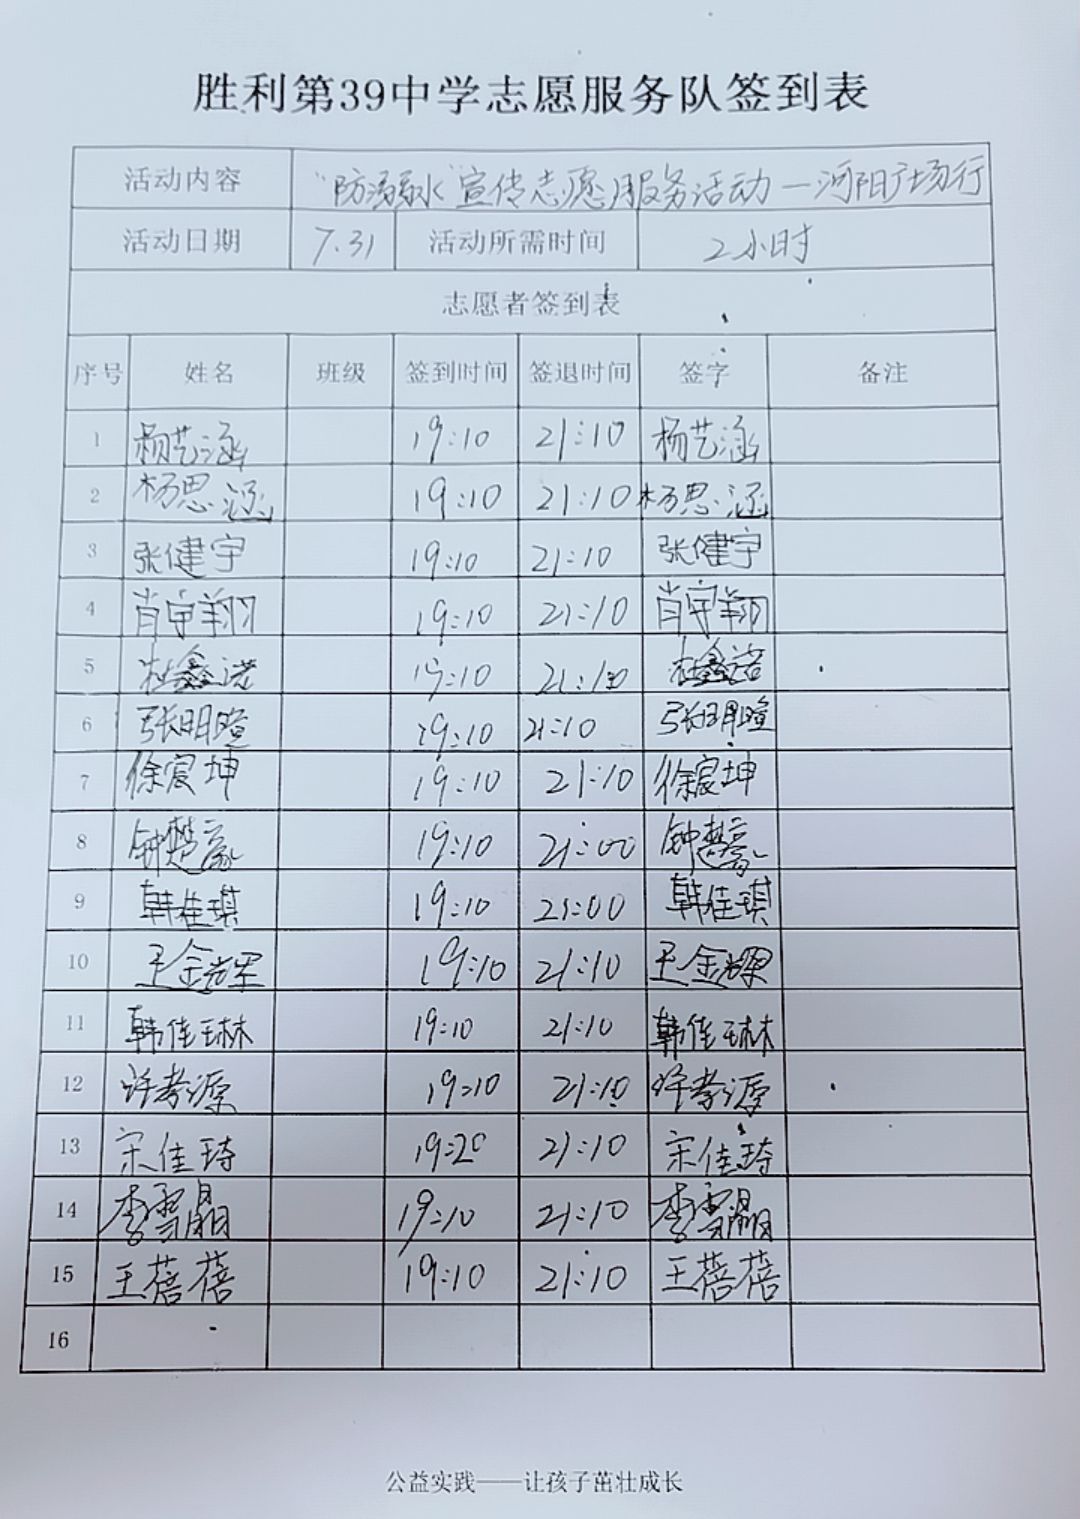 胜利第39中学志愿服务队签到表
活动内容 "防溺水"宣传志愿服务活动—河阳广场行
活动日期 7.31 活动所需时间 2小时
志愿者签到表
序号 姓名 班级 签到时间 签退时间 签字 备注
1 杨艺涵 19:10 21:10 杨艺涵
2 杨思涵 19:10 21:10 杨思涵
3 张健宇 19:10 21:10 张健宇
4 肖宇翔 19:10 21:10 肖宇翔
5 杜鑫诺 19:10 21:10 杜鑫诺
6 张明暄 19:10 21:10 张明暄
7 徐宸坤 19:10 21:10 徐宸坤
8 钟楚豪 19:10 21:00 钟楚豪
9 韩佳琪 19:10 21:00 韩佳琪
10 王金耀 19:10 21:10 王金耀
11 韩佳琳 19:10 21:10 韩佳琳
12 许孝源 19:10 21:10 许孝源
13 宋佳琦 19:20 21:10 宋佳琦
14 李雪晶 19:10 21:10 李雪晶
15 王蓓蓓 19:10 21:10 王蓓蓓
16
公益实践——让孩子茁壮成长